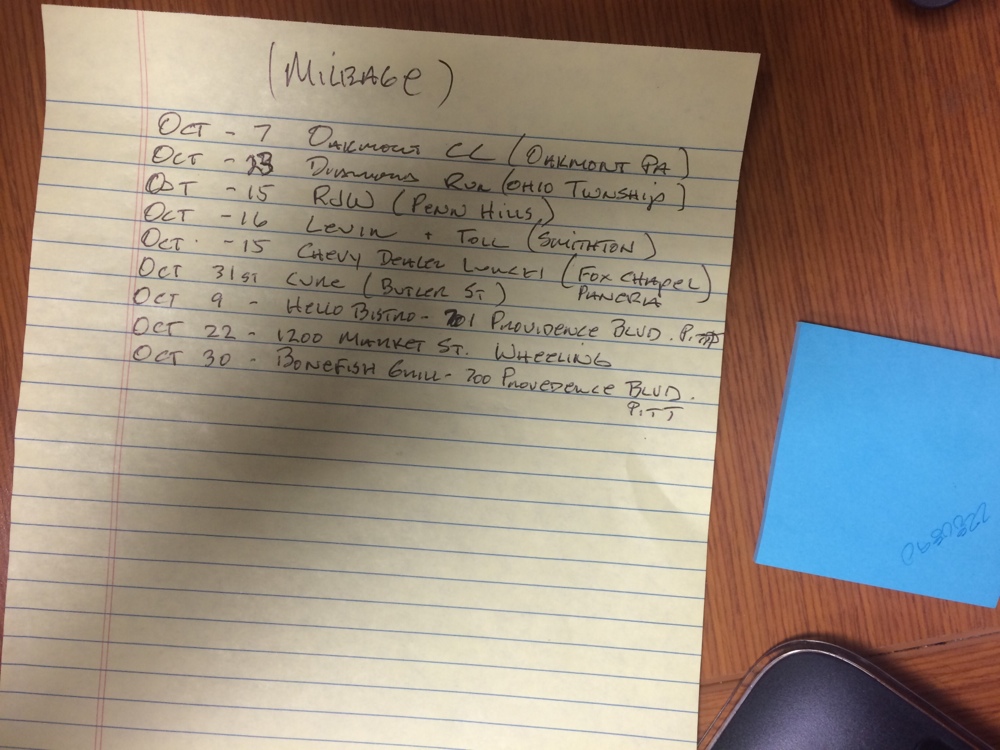 (MILEAGE)
OCT - 7 OAKMONT CC (OAKMONT PA)
OCT - 23 DIAMOND RUN (OHIO TWNSHIP)
OCT - 15 RJW (PENN HILLS)
OCT - 16 LEVIN + TOLL (SMITHTON)
OCT. - 15 CHEVY DEALER LUNCH (FOX CHAPEL)
PANERA
OCT 31ST CURE (BUTLER ST)
OCT 9 - HELLO BISTRO - 701 PROVIDENCE BLVD. PITT
OCT 22 - 1200 MARKET ST. WHEELING
OCT 30 - BONEFISH GRILL - 700 PROVEDENCE BLVD.
PITT